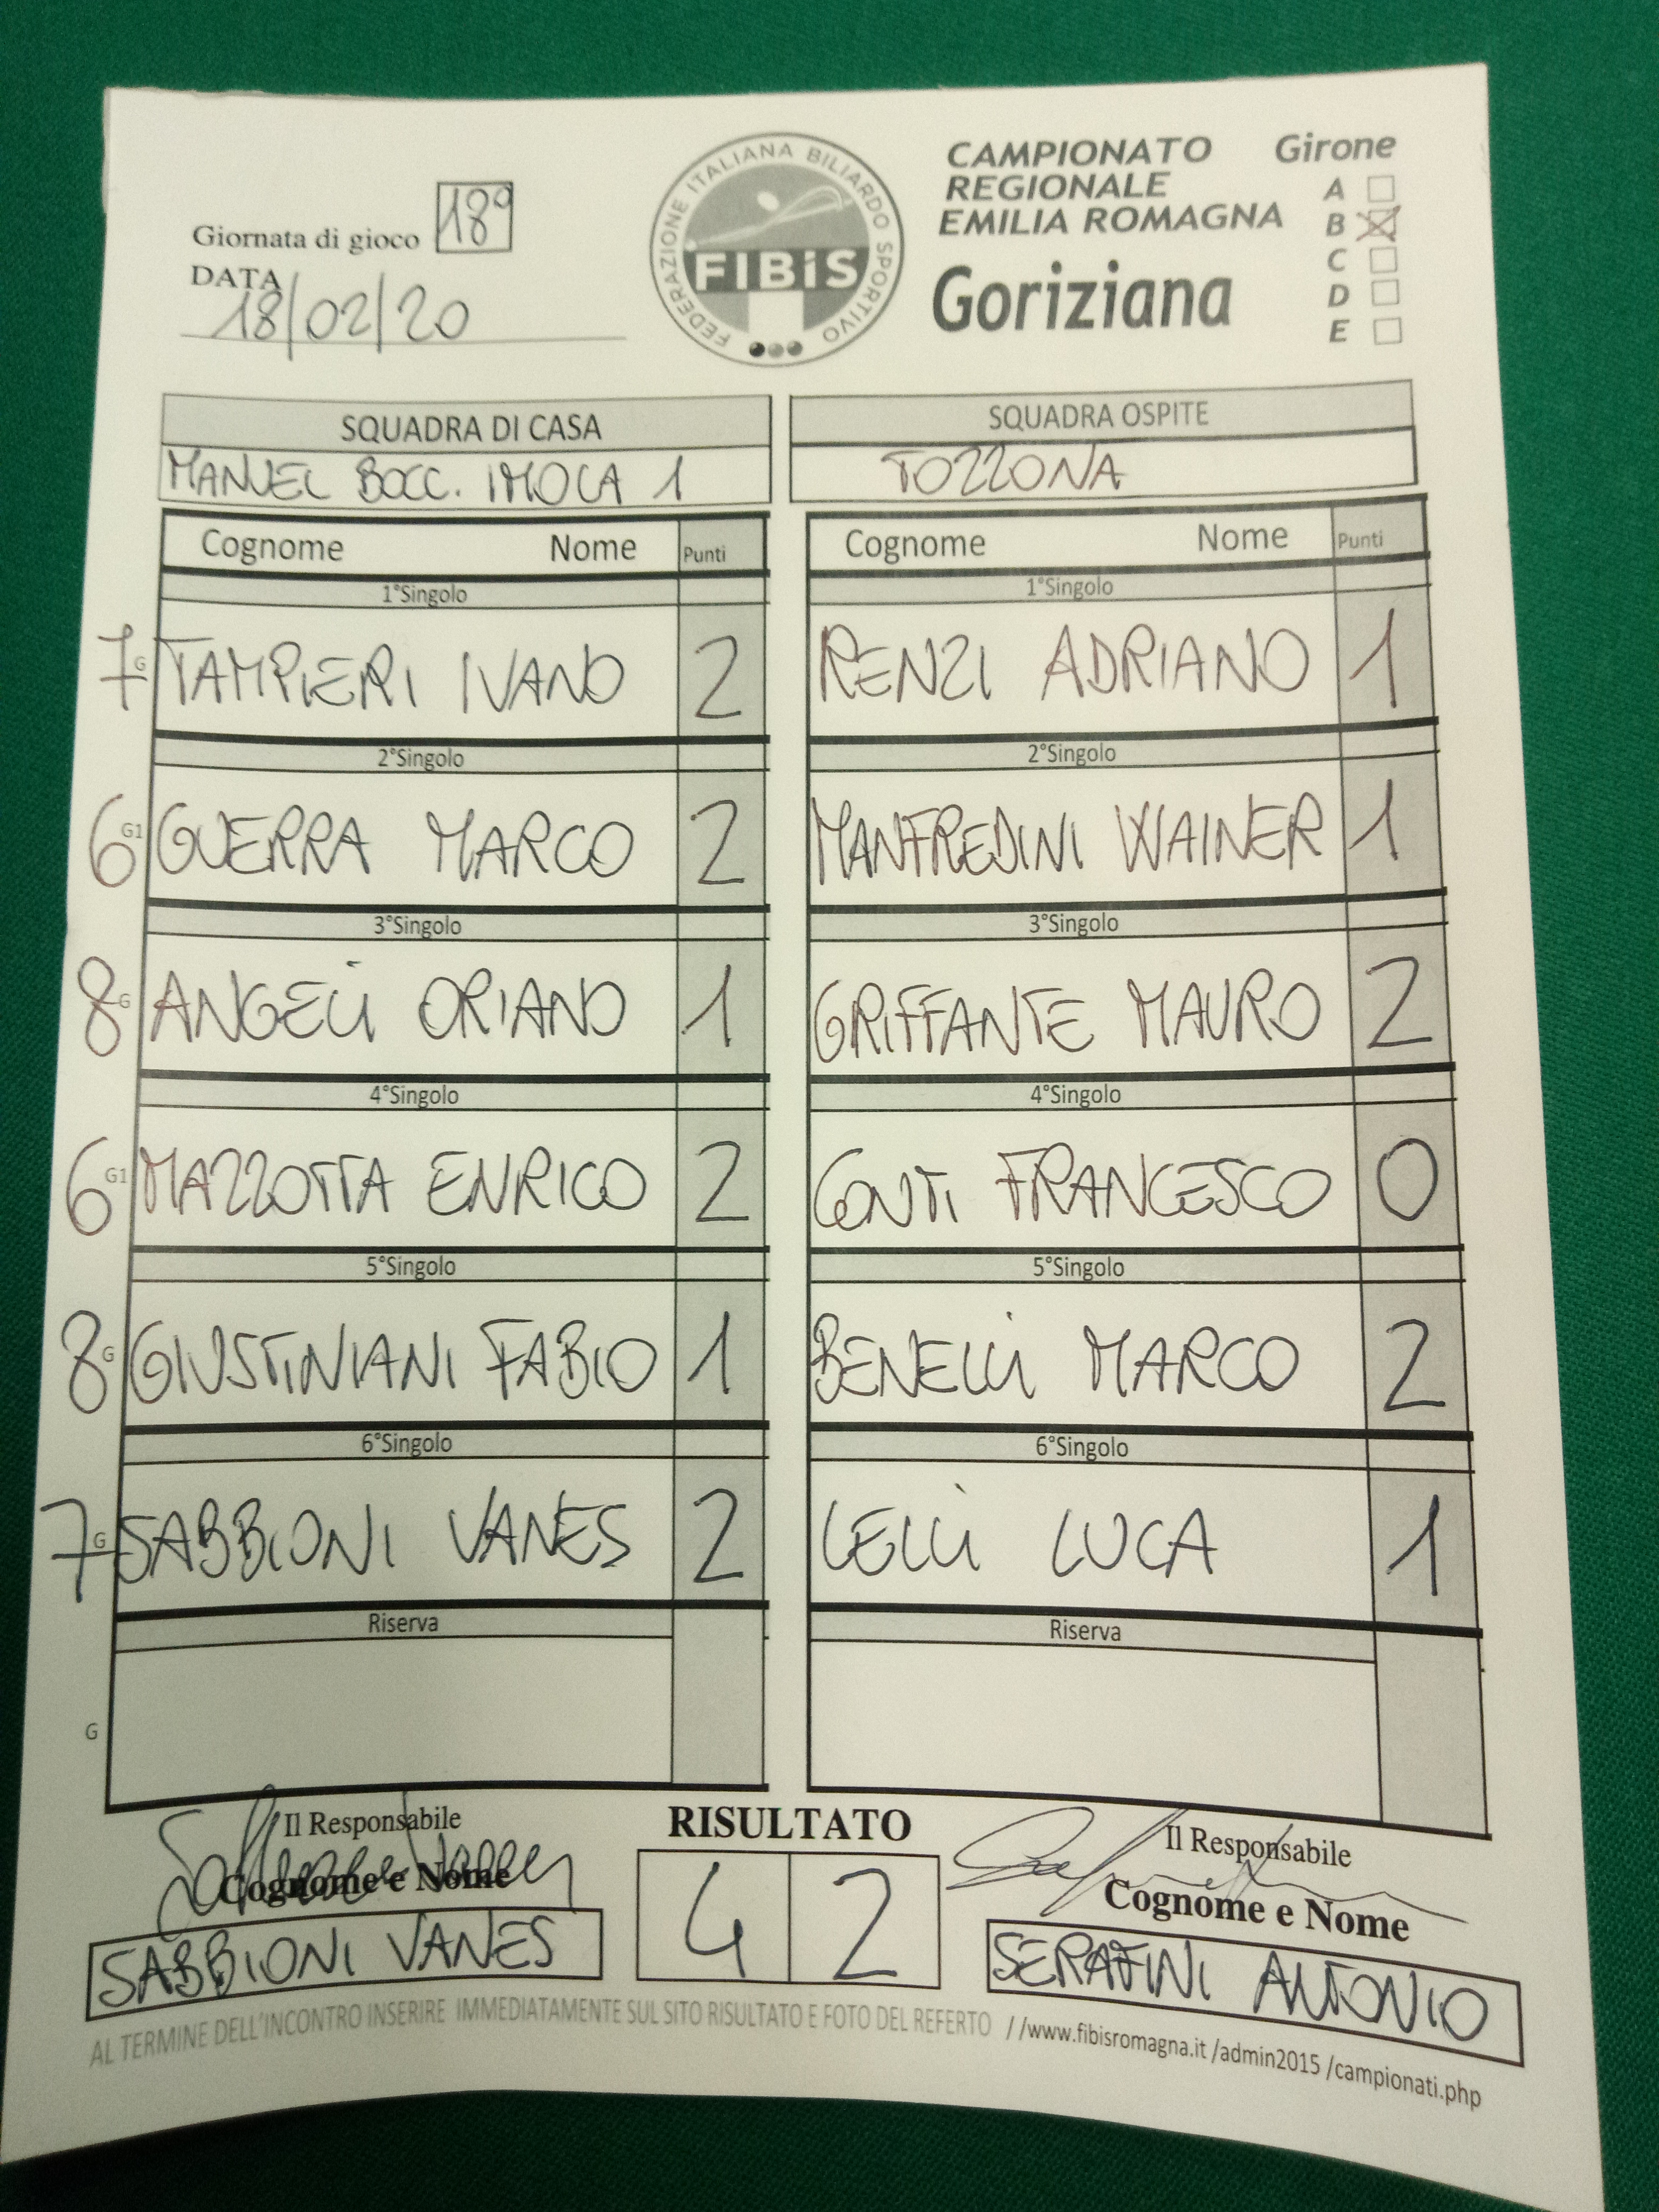 Giornata di gioco 18°
DATA
18/02/20
FEDERAZIONE ITALIANA BILIARDO SPORTIVO
FIBiS
CAMPIONATO
REGIONALE
EMILIA ROMAGNA
Goriziana
Girone
A
B X
C
D
E
SQUADRA DI CASA
MANUEL BOCC. IMOLA 1
SQUADRA OSPITE
TOZZONA
Cognome Nome Punti
Cognome Nome Punti
1°Singolo
1°Singolo
7 G TAMPIERI IVANO 2
RENZI ADRIANO 1
2°Singolo
2°Singolo
6 G1 GUERRA MARCO 2
MANFREDINI WAINER 1
3°Singolo
3°Singolo
8 G ANGELI ORIANO 1
GRIFFANTE MAURO 2
4°Singolo
4°Singolo
6 G1 MAZZOTTA ENRICO 2
CONTI FRANCESCO 0
5°Singolo
5°Singolo
8 G GIUSTINIANI FABIO 1
BENELLI MARCO 2
6°Singolo
6°Singolo
7 G SABBIONI VANES 2
LELLI LUCA 1
Riserva
Riserva
G
Il Responsabile
Cognome e Nome
SABBIONI VANES
RISULTATO
4 2
Il Responsabile
Cognome e Nome
SERAFINI ANTONIO
AL TERMINE DELL'INCONTRO INSERIRE IMMEDIATAMENTE SUL SITO RISULTATO E FOTO DEL REFERTO //www.fibisromagna.it /admin2015 /campionati.php